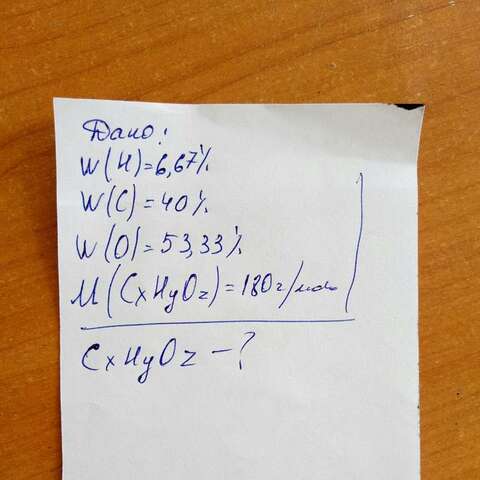 Дано:
W(H)=6,67%
W(C)=40%
W(O)=53,33%
M(CxHyOz)=180г/моль
CxHyOz-?